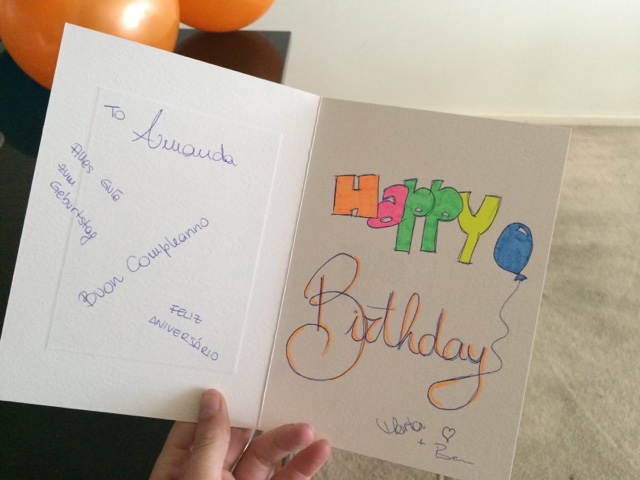 To Amanda
Alles Gute
zum
Geburtstag
Buon Compleanno
FELIZ
ANIVERSÁRIO
Happy
Birthday
+ Ben